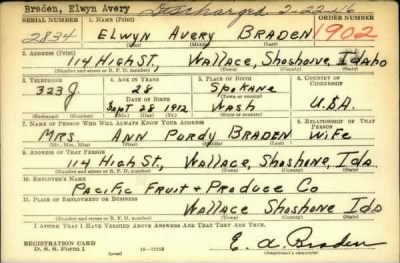 Braden, Elwyn Avery Discharged 2-22-46
SERIAL NUMBER 1. Name (Print) ORDER NUMBER
2834 ELWYN AVERY BRADEN 1902
(First) (Middle) (Last)
2. Address (Print)
114 High St, Wallace, Shoshone Idaho
(Number and street or R. F. D. number) (Town) (County) (State)
3. Telephone 4. Age in Years 5. Place of Birth 6. Country of Citizenship
323 J 28 Spokane
Date of Birth (Town or county)
Sept 28 1912 Wash U.S.A.
(Exchange) (Number) (Mo.) (Day) (Yr.) (State or country)
7. Name of Person Who Will Always Know Your Address 8. Relationship of That Person
Mrs. Ann Purdy Braden Wife
(Mr., Mrs., Miss) (First) (Middle) (Last)
9. Address of That Person
114 High St, Wallace, Shoshone, Ida
(Number and street or R. F. D. number) (Town) (County) (State)
10. Employer's Name
Pacific Fruit + Produce Co
11. Place of Employment or Business
Wallace Shoshone Ida
(Number and street or R. F. D. number) (Town) (County) (State)
I Affirm That I Have Verified Above Answers and That They Are True.
REGISTRATION CARD
D. S. S. Form 1 (over) 16—17105 E. A. Braden
(Registrant's signature)